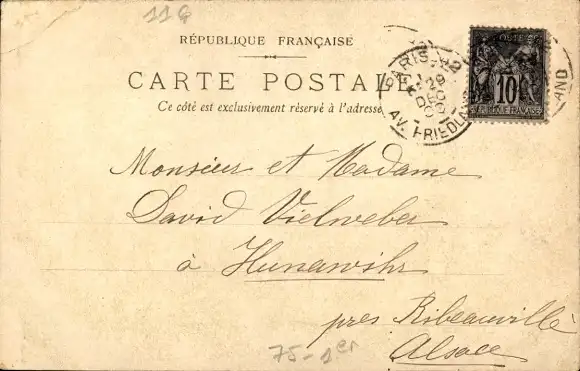 11G
RÉPUBLIQUE FRANÇAISE
CARTE POSTALE
Ce côté est exclusivement réservé à l'adresse
PARIS
29
DEC
00
AV. FRIEDLAND
POSTES
10
RÉPUBLIQUE FRANÇAISE
Monsieur et Madame
David Vielweber
à Hunawihr
près Ribeauvillé
Alsace
75-1er